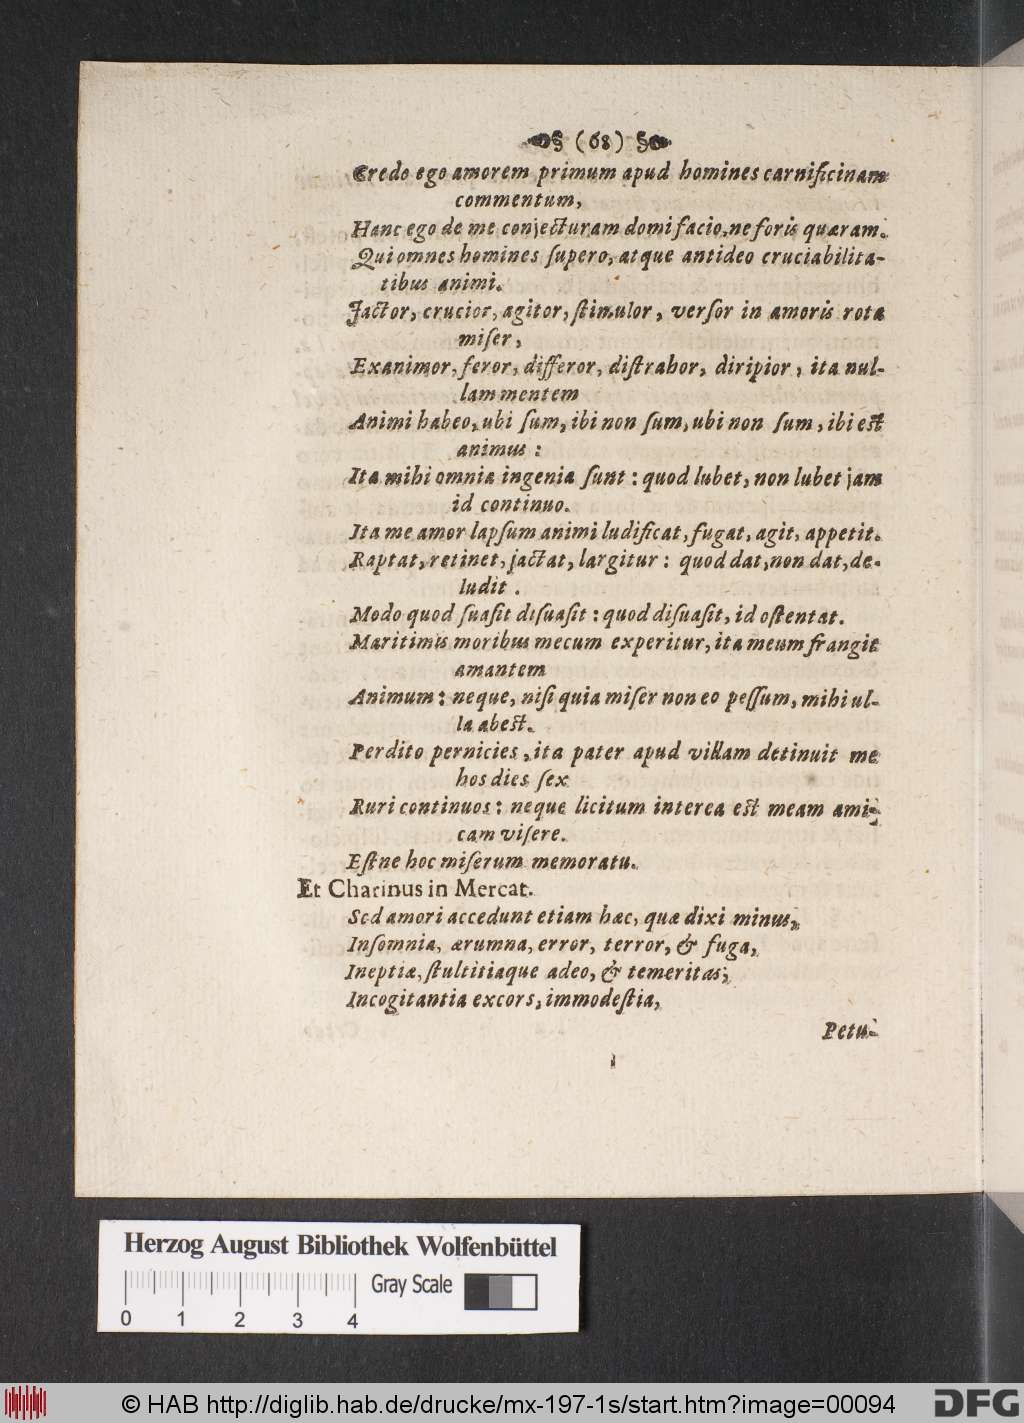 (68)
Credo ego amorem primum apud homines carnificinam
commentum,
Hanc ego de me conjecturam domi facio, ne foris quæram.
Qui omnes homines ſupero, atque antideo cruciabilita-
tibus animi.
Jactor, crucior, agitor, ſtimulor, verſor in amoris rota
miſer,
Exanimor, feror, differor, diſtrahor, diripior, ita nul-
lam mentem
Animi habeo, ubi ſum, ibi non ſum, ubi non ſum, ibi eſt
animus:
Ita mihi omnia ingenia ſunt: quod lubet, non lubet jam
id continuo.
Ita me amor lapſum animi ludificat, fugat, agit, appetit.
Raptat, retinet, jactat, largitur: quod dat, non dat, de-
ludit.
Modo quod ſuaſit diſuaſit: quod diſuaſit, id oſtentat.
Maritimis moribus mecum experitur, ita meum frangit
amantem
Animum: neque, niſi quia miſer non eo peſſum, mihi ul-
la abeſt.
Perdito pernicies, ita pater apud villam detinuit me
hos dies ſex
Ruri continuos: neque licitum interea eſt meam ami-
cam viſere.
Eſtne hoc miſerum memoratu.
Et Charinus in Mercat.
Sed amori accedunt etiam hæc, quæ dixi minus,
Inſomnia, ærumna, error, terror, & fuga,
Ineptiæ, ſtultitiaque adeo, & temeritas,
Incogitantia excors, immodeſtia,
Petu-
Herzog August Bibliothek Wolfenbüttel
Gray Scale
0 1 2 3 4
© HAB http://diglib.hab.de/drucke/mx-197-1s/start.htm?image=00094
DFG